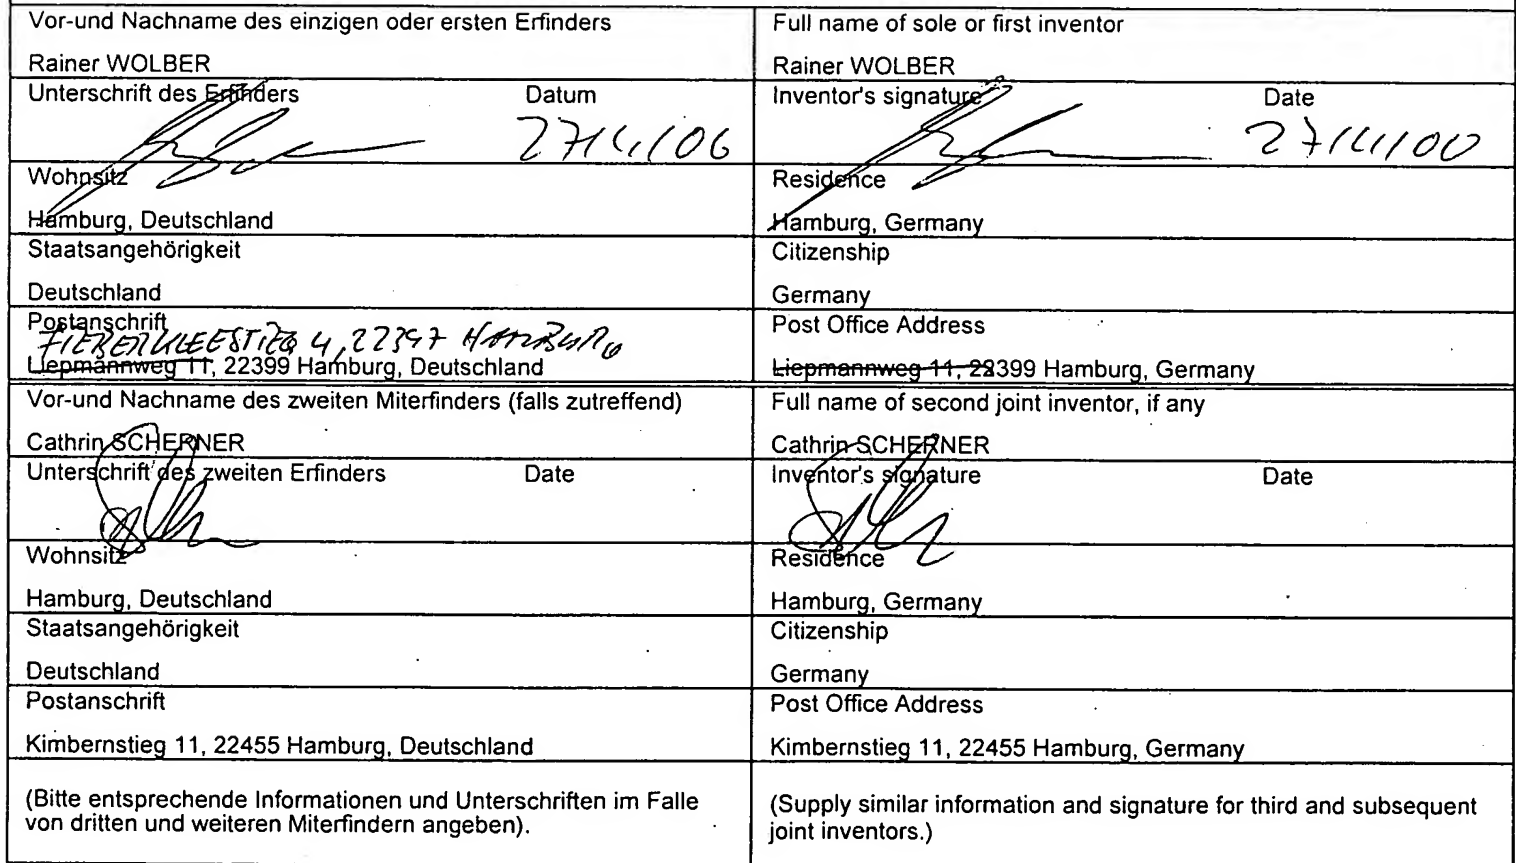 Vor-und Nachname des einzigen oder ersten Erfinders
Rainer WOLBER
Full name of sole or first inventor
Rainer WOLBER
Unterschrift des Erfinders Datum
Inventor's signature Date
Wohnsitz
Hamburg, Deutschland
Residence
Hamburg, Germany
Staatsangehörigkeit
Deutschland
Citizenship
Germany
Postanschrift
4, 22397 HAMBURG
Liepmannweg 11, 22399 Hamburg, Deutschland
Post Office Address
Liepmannweg 11, 22399 Hamburg, Germany
Vor-und Nachname des zweiten Miterfinders (falls zutreffend)
Cathrin SCHERNER
Full name of second joint inventor, if any
Cathrin SCHERNER
Unterschrift des zweiten Erfinders Date
Inventor's signature Date
Wohnsitz
Hamburg, Deutschland
Residence
Hamburg, Germany
Staatsangehörigkeit
Deutschland
Citizenship
Germany
Postanschrift
Kimbernstieg 11, 22455 Hamburg, Deutschland
Post Office Address
Kimbernstieg 11, 22455 Hamburg, Germany
(Bitte entsprechende Informationen und Unterschriften im Falle
von dritten und weiteren Miterfindern angeben).
(Supply similar information and signature for third and subsequent
joint inventors.)